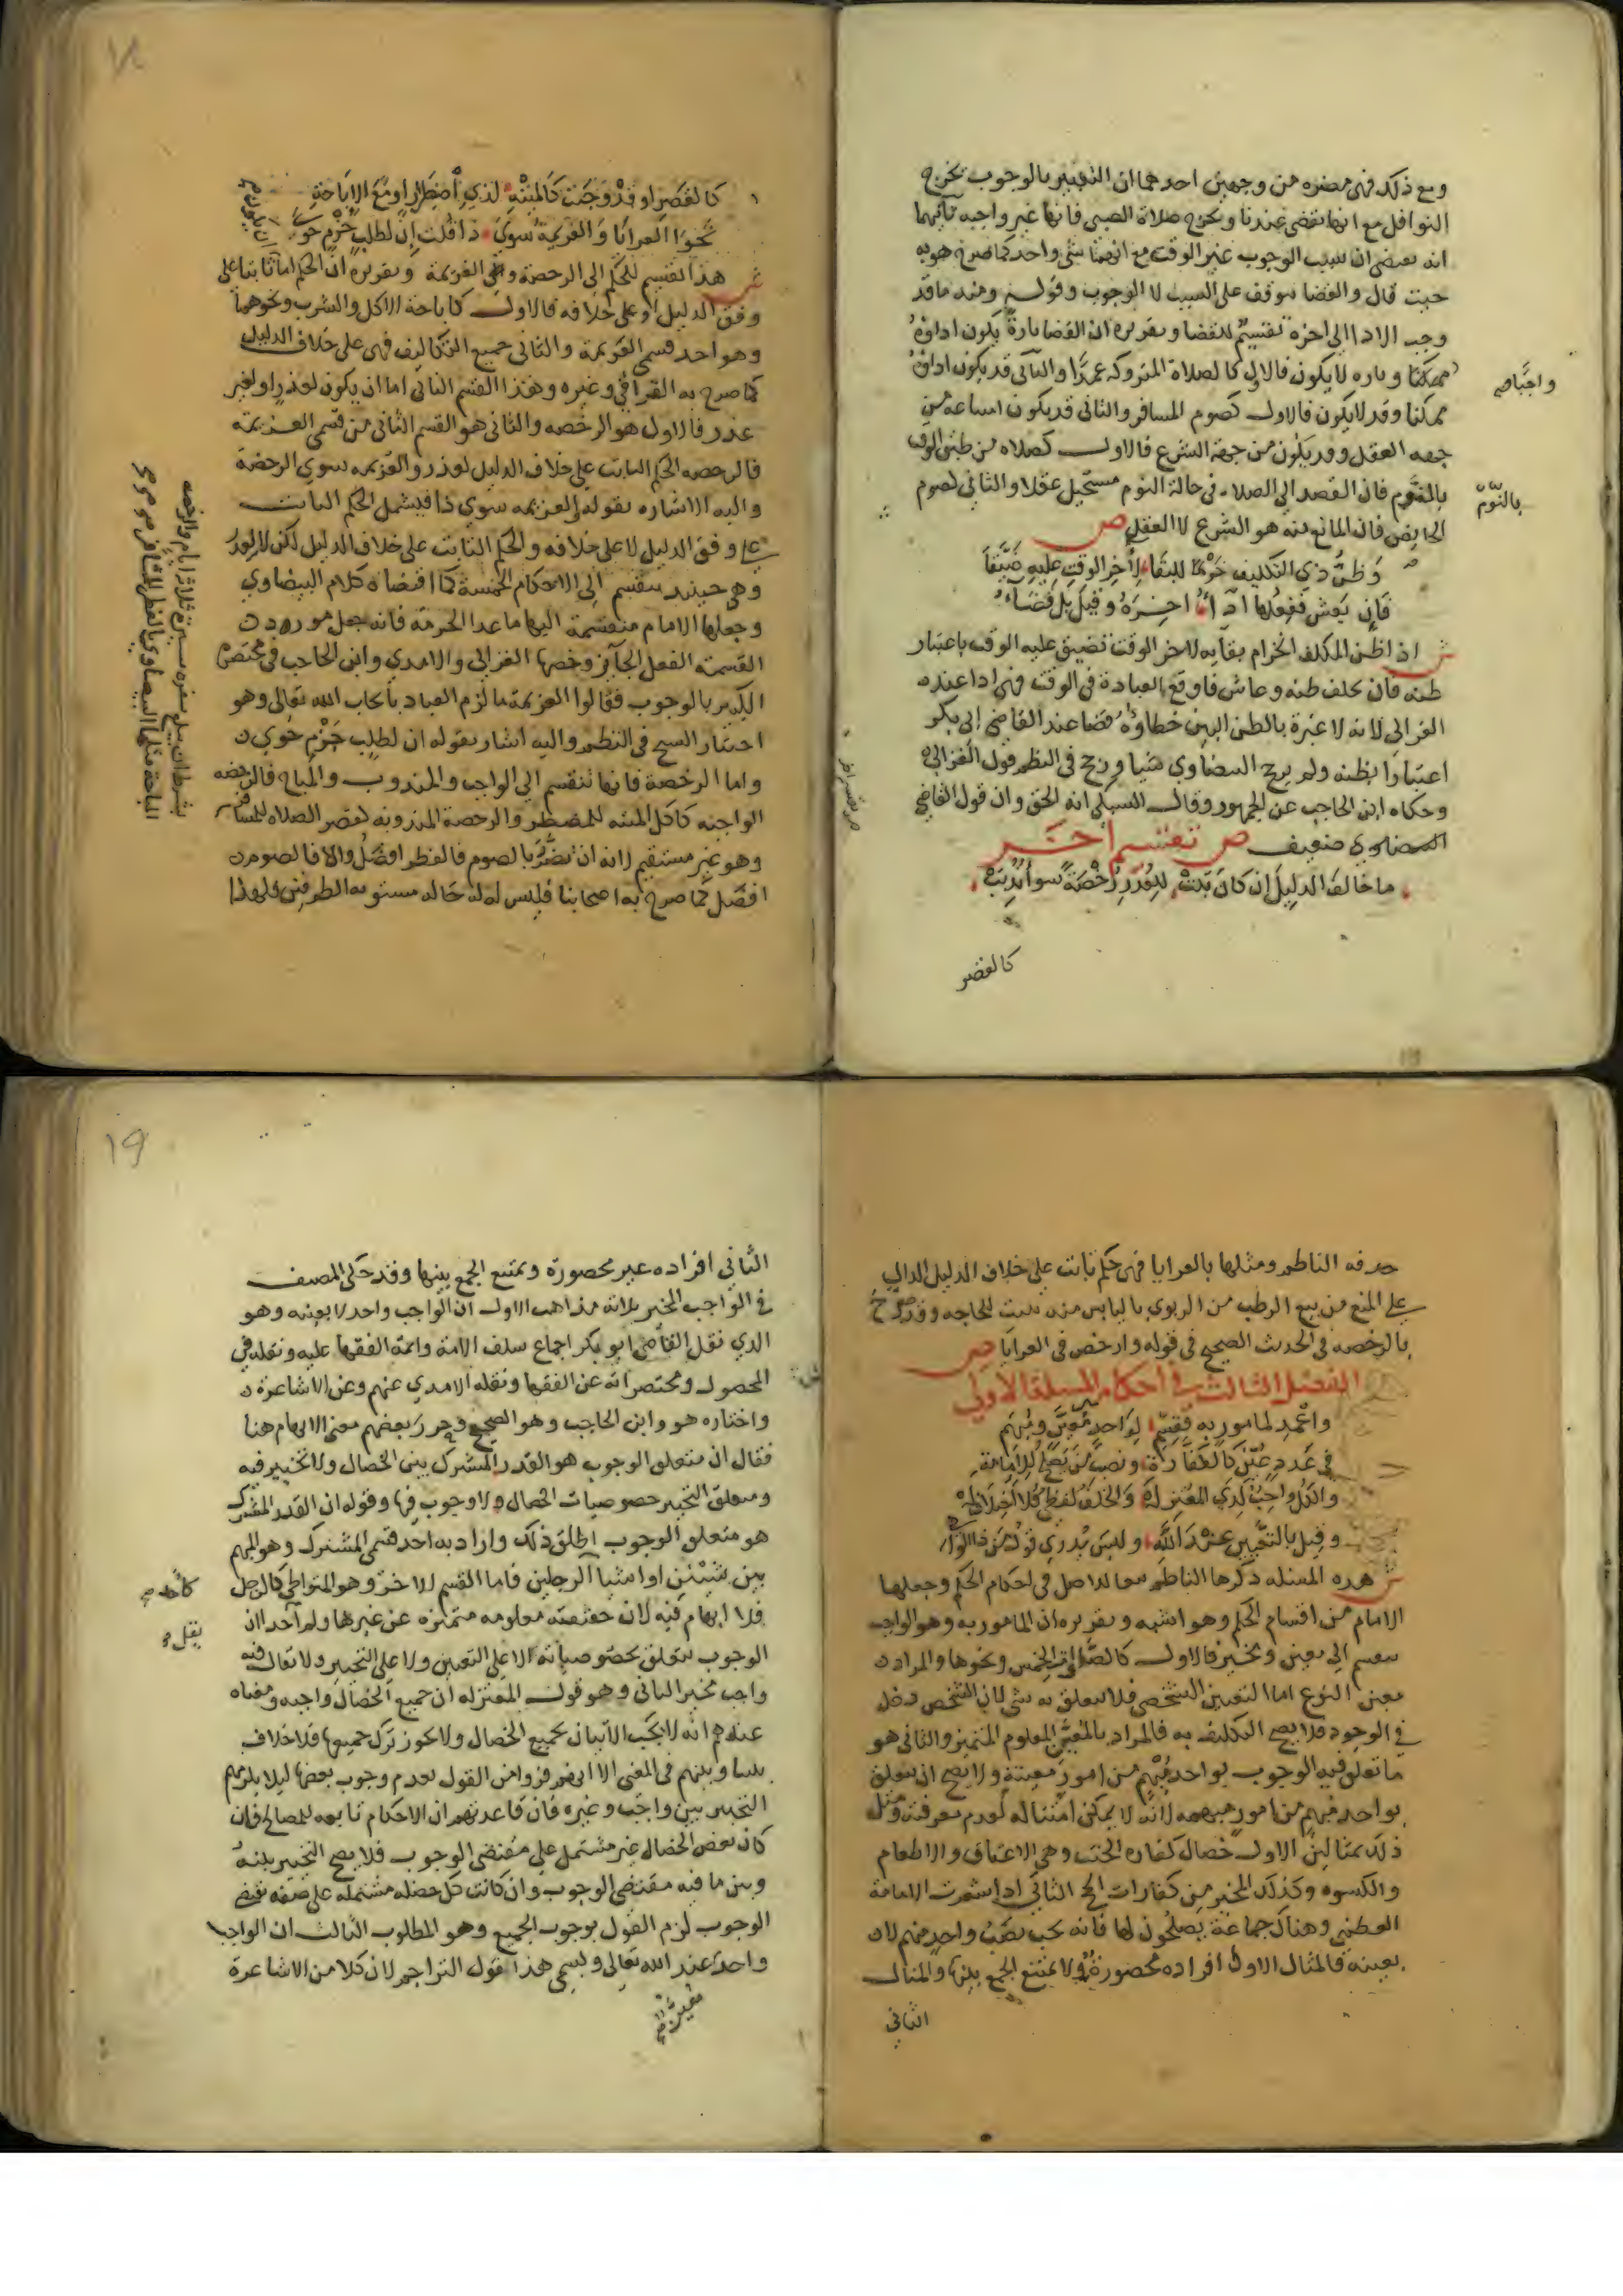 ومع ذلك فهي مضره من وجهين احدهما ان التعبير بالوجوب يخرج
النوافل مع انها تقضى عندنا ويخرج صلاة الصبي فانها غير واجبه
انه يقتضى ان سبب الوجوب غير الوقت مع انهما شي واحد كما صرح هو به
حيث قال والقضا يتوقف على السبب لا الوجوب وقوله وعند ما قد
وجب الادا الى اخره تقسيم للقضا وتقريره ان القضا تارة يكون اداؤه
ممكنا وتاره لا يكون فالاول كالصلاة المتروكه عمدًا والثاني قد يكون اداؤه
واجبًا صح
ممكنا وقد لا يكون فالاول كصوم المسافر والثاني قد يكون امتناعه من
جهه العقل وقد يكون من جهة الشرع فالاول كصلاه من ظن الوقت
بالنوم فان القصد الى الصلاه في حالة النوم مستحيل عقلا والثاني كصوم
بالنّوم
الحايض فان المانع منه هو الشرع لا العقل ص
وَظنُّ ذي التكليف خرمًا للبقا لآخر الوقت عليه ضيّقا
فإن يعش ففعلها اداءُ اخره وقيل بل قضاءُ
ش اذا ظن المكلف انخرام بقايه لاخر الوقت تضيق عليه الوقت باعتبار
ظنه فان تخلف ظنه وعاش فاوقع العبادة في الوقت فهي ادا عند
الغزالي لانه لا عبرة بالظن البين خطاؤه قضا عند القاضي ابي بكر
اعتبارا بظنه ولم يرجح البيضاوي شيا ورجح في النظم قول الغزالي
وحكاه ابن الحاجب عن الجمهور وقال السبكي انه الحق وان قول القاضي
البيضاوي ضعيف ص تقسيم اخر
ما خالف الدليل إن كان ثبت للعذر رخصة سوا
كالقصر
كالقصر او قد وجبت كالميتة لذي اضطرار او مع الاباحة
نحو العرايا والعزيمة سوى ذا قلت ان لطلب جزم حوى
ش هذا تقسيم للحكم الى الرخصة والى العزيمة وتقريره ان الحكم اما ثابتا على
وفق الدليل او على خلافه فالاول كاباحة الاكل والشرب ونحوهما
وهو احد قسمي العزيمة والثاني جميع التكاليف فهي على خلاف الدليل
كما صرح به القرافي وغيره وهذا القسم الثاني اما ان يكون لعذر او لغير
عذر فالاول هو الرخصه والثاني هو القسم الثاني من قسمي العزيمة
فالرخصه الحكم الثابت على خلاف الدليل لعذر والعزيمه سوى الرخصة
واليه الاشاره بقوله والعزيمه سوى ذا فيشمل الحكم الثابت
على وفق الدليل لا على خلافه والحكم الثابت على خلاف الدليل لكن لا لعذر
وهي حينيد تنقسم الى الاحكام الخمسة كما اقتضاه كلام البيضاوي
وجعلها الامام منقسمة اليها ما عدا الحرمة فانه جعل مورد
القسمة الفعل الجايز وخصها الغزالي والامدي وابن الحاجب في مختصره
الكبير بالوجوب فقالوا العزيمة ما لزم العباد بايجاب الله تعالى وهو
اختيار الشيخ في النظم واليه اشار بقوله ان لطلب جزم حوى
واما الرخصة فانها تنقسم الى الواجب والمندوب والمباح فالرخصه
الواجبه كاكل الميته للمضطر والرخصة المندوبه لقصر الصلاه للمسافر
بشرط ان يبلغ سفره مسيرة ثلاثة ايام والرخصه
المباحة مثلها البيضاوي بالفطر للمسافر
وهو غير مستقيم لانه ان تضرر بالصوم فالفطر افضل والا فالصوم
افضل كما صرح به اصحابنا فليس له حاله مستويه الطرفين فلهذا
حذفه الناظم ومثلها بالعرايا فهي حكم ثابت على خلاف الدليل الدال
على المنع من بيع الرطب من الربوي باليابس منه ثبت للحاجه وقد صرح
بالرخصه في الحديث الصحيح في قوله وارخص في العرايا ص
الفصل الثالث في احكام المسلة الاولى
واعمد لمامور به فقسم لواحد معين ومبهم
في عدد عين كالكفارة ونصب من يصلح للامامة
والكل واجب لدى المعتزلة والخلف لفظ
وقيل بالتعيين عند الله وليس يدري قول من
ش هذه المسله ذكرها الناظم تبعا للاصل في احكام الحكم وجعلها
الامام من اقسام الحكم وهو اشبه وتقريره ان المامور به وهو الواجب
ينقسم الى معين ومخير فالاول كالصلوات الخمس ونحوها والمراد
معين النوع اما التعيين الشخصي فلا يتعلق به شي لان الشخص دخل
في الوجود فلا يصح التكليف به فالمراد بالمعين المعلوم المتميز والثاني هو
ما تعلق فيه الوجوب بواحد مبهم من امور معينة ولا يصح ان يتعلق
بواحد مبهم من امور مبهمه لانه لا يمكن امتثاله لعدم معرفته ومثل
ذلك بمثالين الاول خصال كفاره الحنث وهي الاعتاق والاطعام
والكسوه وكذلك المخير من كفارات الحج الثاني اذا شغرت الامامة
العظمى وهناك جماعة يصلحون لها فانه يجب نصب واحد منهم لا
بعينه فالمثال الاول افراده محصورة ولا يمتنع الجمع بينها والمثال
الثاني
١٩
الثاني افراده غير محصورة ويمتنع الجمع بينها وقد حكى المصنف
في الواجب المخير ثلاثه مذاهب الاول ان الواجب واحد لا بعينه وهو
الذي نقل القاضي ابو بكر اجماع سلف الامة وايمة الفقها عليه ونقله في
المحصول ومختصراته عن الفقها ونقله الامدي عنهم وعن الاشاعرة
واختاره هو وابن الحاجب وهو الصحيح وحرر بعضهم معنى الابهام هنا
فقال ان متعلق الوجوب هو القدر المشترك بين الخصال ولا تخيير فيه
ومتعلق التخيير خصوصيات الخصال ولا وجوب فيها وقوله ان القدر المشترك
هو متعلق الوجوب اطلق ذلك واراد به احد قسمي المشترك وهو المبهم
بين شيئين او اشيا كاحد الرجلين فاما القسم الاخر وهو المتواطي كالرجل
كاحد صح
فلا ابهام فيه لان حقيقته معلومه متميزه عن غيرها ولم يقل احد ان
يقل
الوجوب يتعلق بخصوصياته لا على التعيين ولا على التخيير ولا يقال فيه
واجب مخير الثاني وهو قول المعتزله ان جميع الخصال واجبه ومعناه
عندهم انه لا يجب الاتيان بجميع الخصال ولا يجوز ترك جميعها فلا خلاف
بيننا وبينهم في المعنى الا انهم فروا من القول بعدم وجوب بعضها ليلا يلزمهم
التخيير بين واجب وغيره فان قاعدتهم ان الاحكام تابعه للمصالح فان
كان بعض الخصال غير مشتمل على مقتضى الوجوب فلا يصح التخيير بينه
وبين ما فيه مقتضى الوجوب وان كانت كل خصله مشتمله على صفه تقتضي
الوجوب لزم القول بوجوب الجميع وهو المطلوب الثالث ان الواجب
واحد عند الله تعالى ويسمى هذا قول التراجم لان كلا من الاشاعرة